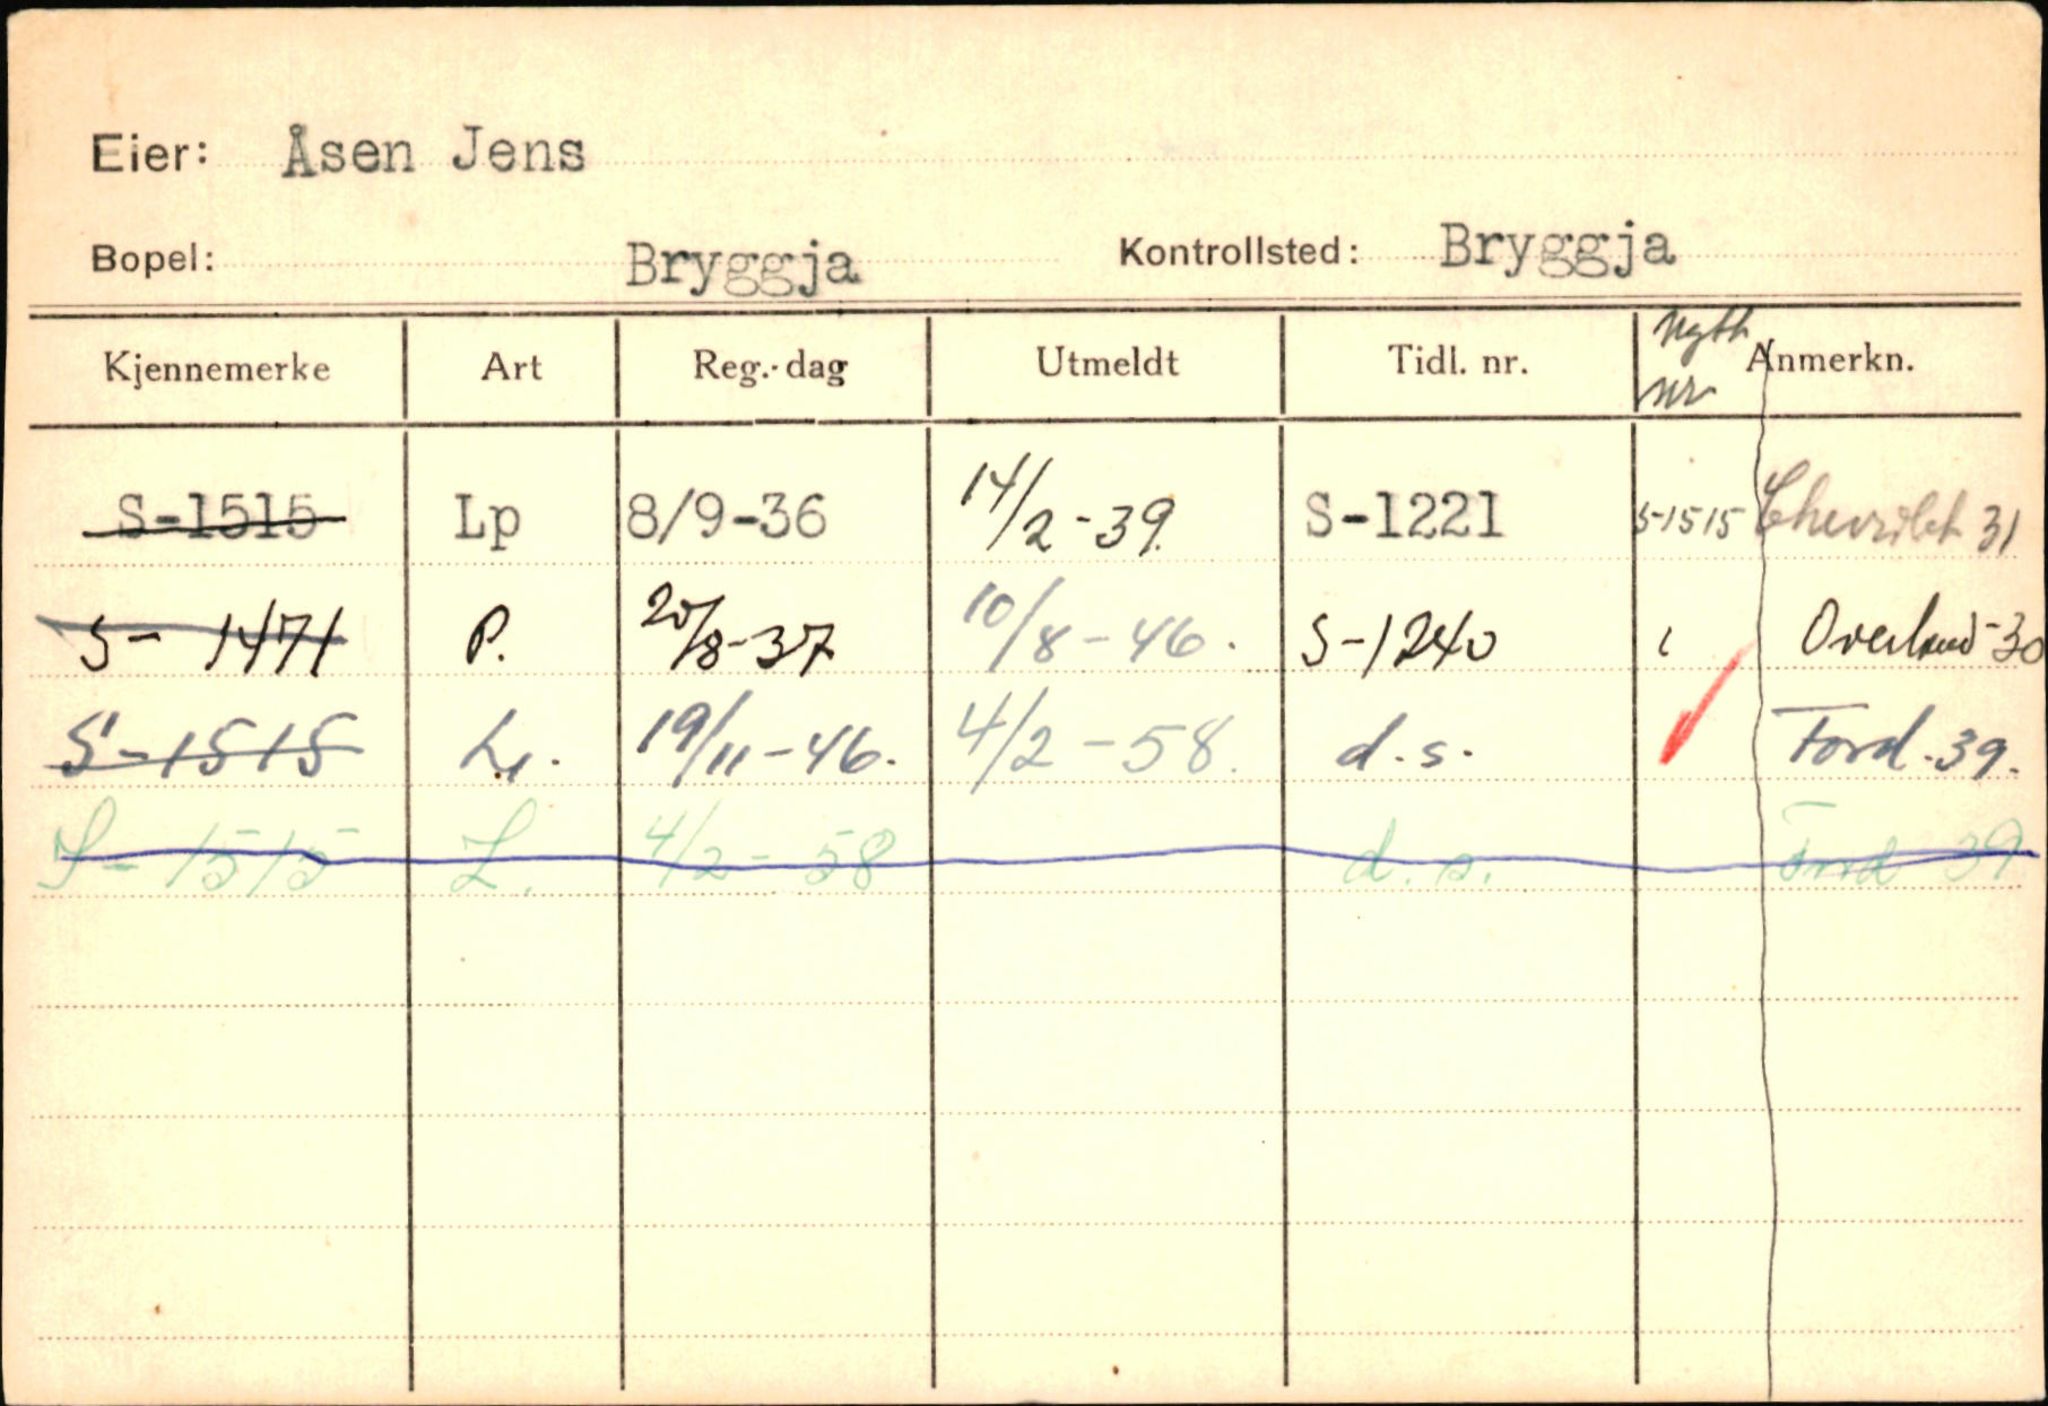 Eier: Åsen Jens
Bopel: Bryggja Kontrollsted: Bryggja
Kjennemerke Art Reg.-dag Utmeldt Tidl. nr. Nytt nr Anmerkn.
S-1515 Lp 8/9-36 14/2-39. S-1221 S-1515 Chevrolet 31
S-1471 P. 20/8-37 10/8-46. S-1240 Overland-30
S-1515 L. 19/11-46. 4/2-58. d.s. Ford-39.
S-1515 L. 4/2-58 d.s. Ford 39